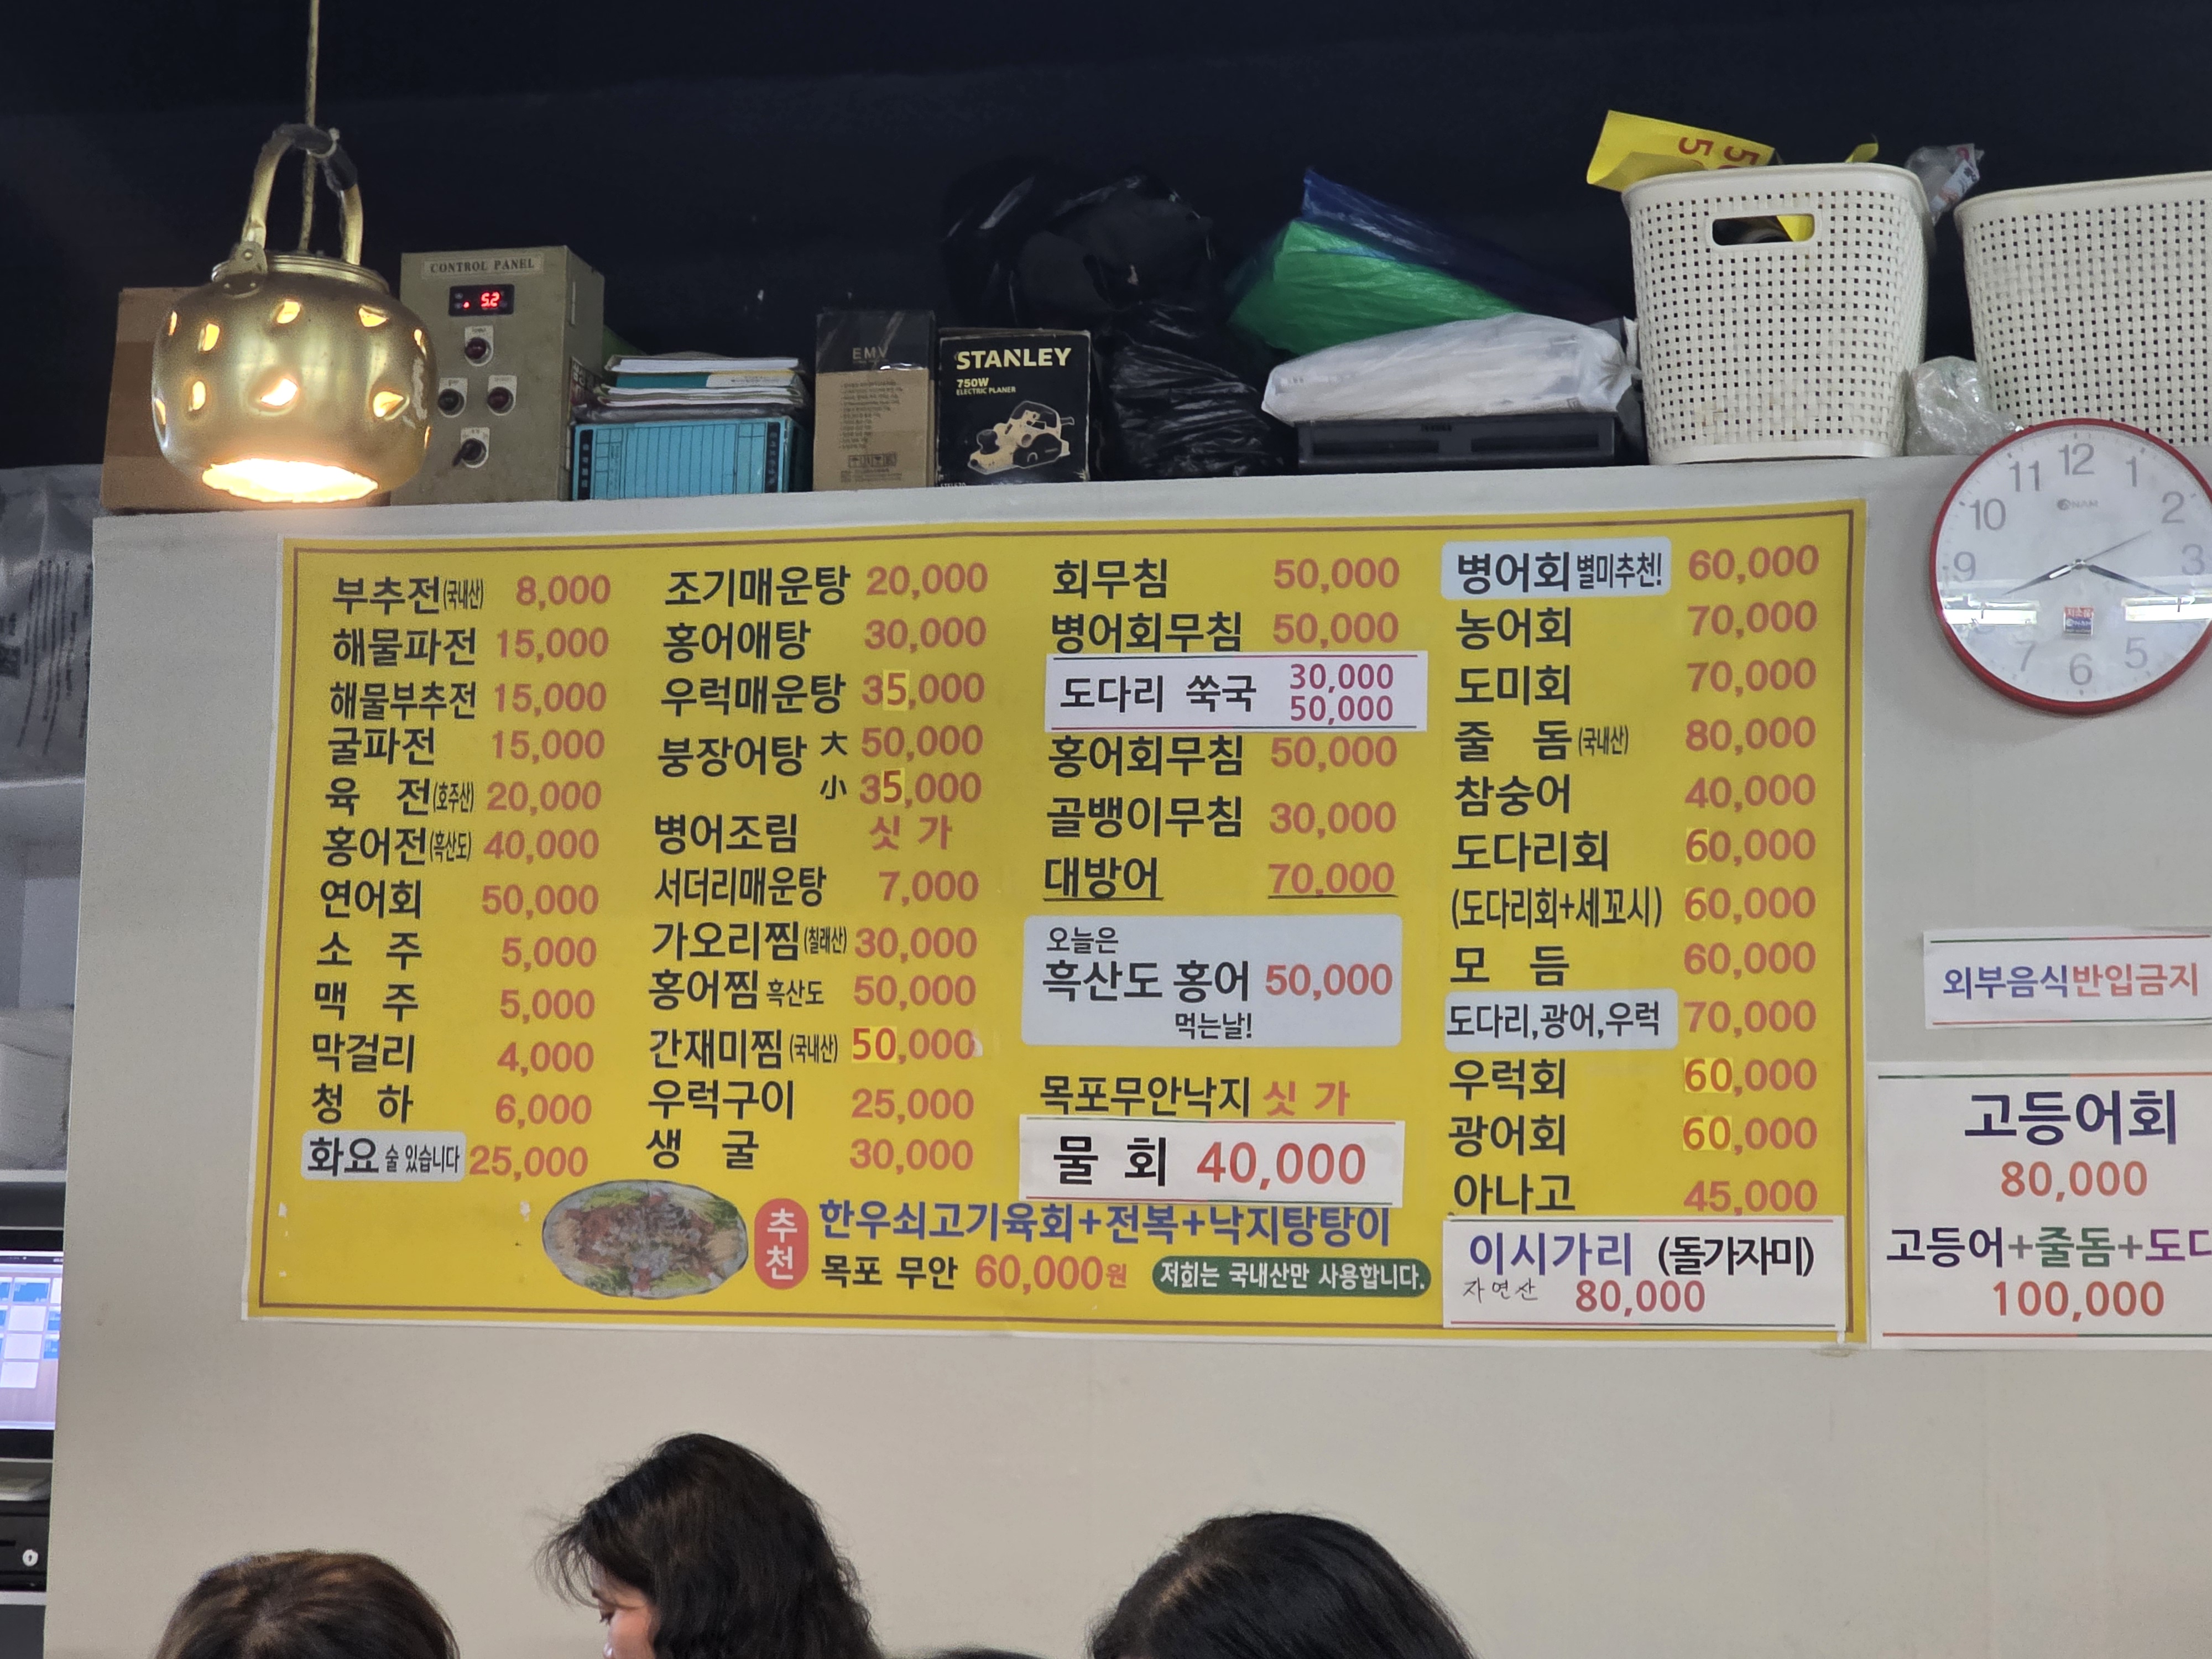 CONTROL PANEL
5.2
EMV
STANLEY
750W
ELECTRIC PLANER
부추전(국내산) 8,000
해물파전 15,000
해물부추전 15,000
굴파전 15,000
육 전(호주산) 20,000
홍어전(흑산도) 40,000
연어회 50,000
소 주 5,000
맥 주 5,000
막걸리 4,000
청 하 6,000
화요 술 있습니다 25,000
조기매운탕 20,000
홍어애탕 30,000
우럭매운탕 35,000
붕장어탕 大 50,000
小 35,000
병어조림 싯 가
서더리매운탕 7,000
가오리찜(칠래산) 30,000
홍어찜 흑산도 50,000
간재미찜(국내산) 50,000
우럭구이 25,000
생 굴 30,000
회무침 50,000
병어회무침 50,000
도다리 쑥국 30,000
50,000
홍어회무침 50,000
골뱅이무침 30,000
대방어 70,000
오늘은
흑산도 홍어 50,000
먹는날!
목포무안낙지 싯 가
물 회 40,000
병어회 별미추천! 60,000
농어회 70,000
도미회 70,000
줄 돔(국내산) 80,000
참숭어 40,000
도다리회 60,000
(도다리회+세꼬시) 60,000
모 듬 60,000
도다리,광어,우럭 70,000
우럭회 60,000
광어회 60,000
아나고 45,000
이시가리 (돌가자미)
자연산 80,000
추천
한우쇠고기육회+전복+낙지탕탕이
목포 무안 60,000원 저희는 국내산만 사용합니다.
12
1
2
3
5
6
7
9
10
11
외부음식반입금지
고등어회
80,000
고등어+줄돔+도다
100,000